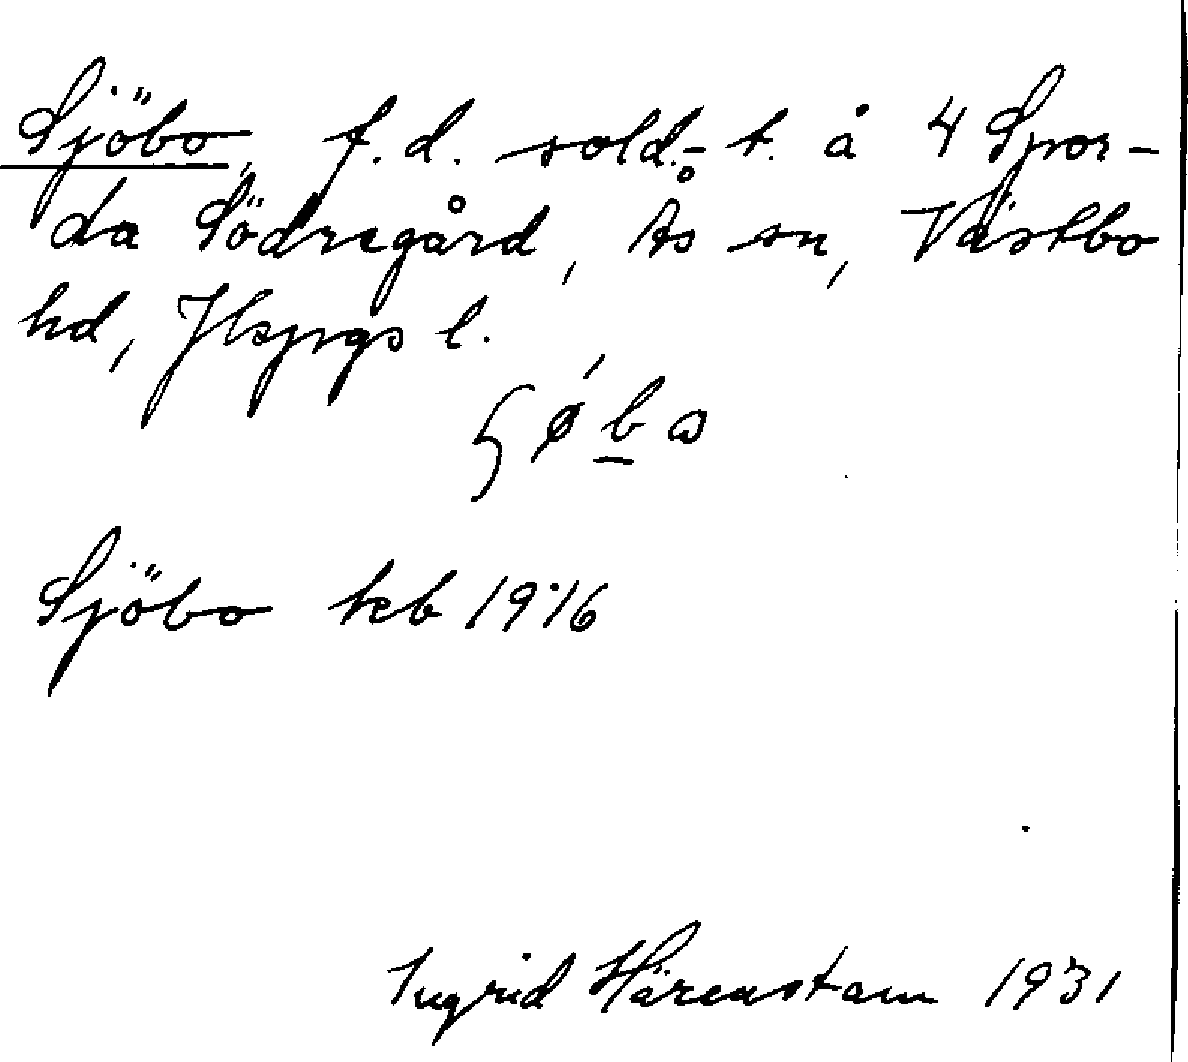 Sjöbo, f.d. sold.-t. å 4 Spor-
da Södregård, Ås sn, Västbo
hd, Jkpgs l.
Sjöbo keb 1916
Ingrid Härenstam 1931